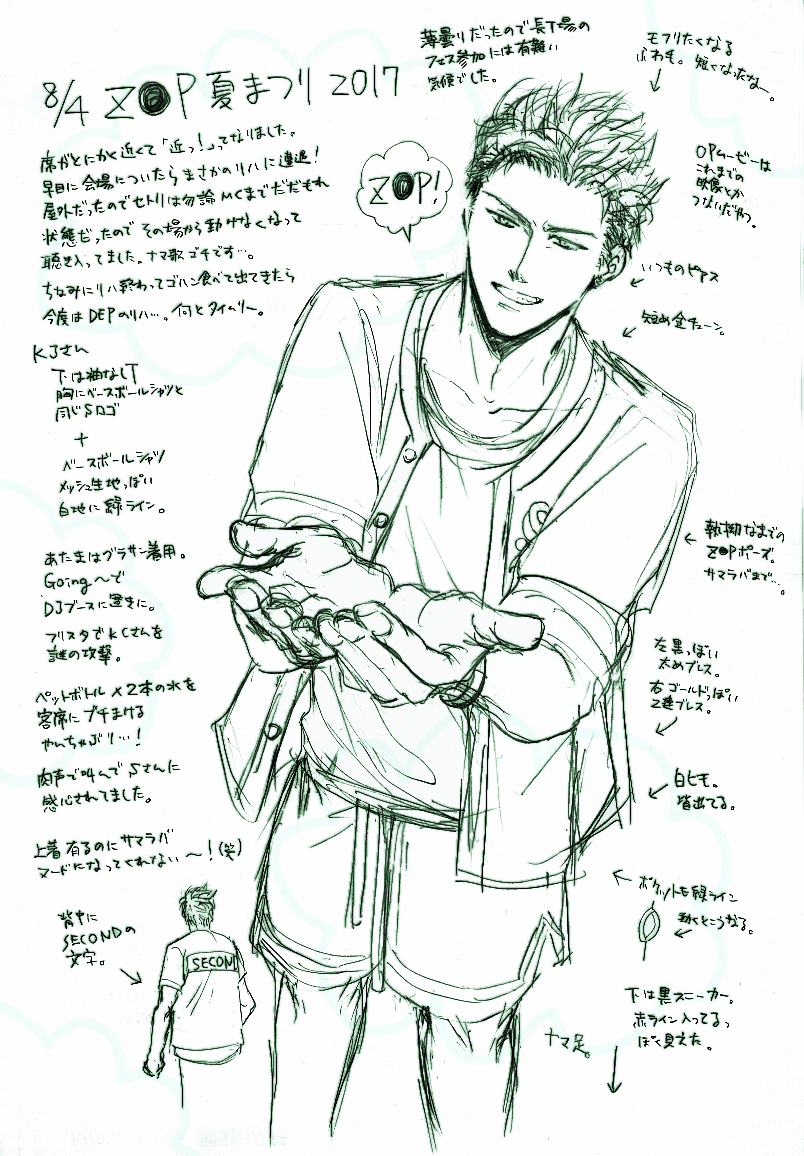 8/4 ZOP 夏まつり 2017
薄曇りだったので長丁場の
フェス参加には有難い
気候でした。
モフりたくなる
ふわ毛。短くなったなー。
席がとにかく近くて「近っ!」ってなりました。
早目に会場についたらまさかのリハに遭遇!
屋外だったのでセトリは勿論MCまでだだもれ
状態だったのでその場から動けなくなって
聴き入ってました。ナマ歌ゴチです…。
ちなみにリハ終わってゴハン食べて出てきたら
今度はDEPのリハ…。何とタイムリー。
ZOP!
OPムービーは
これまでの
映像とか
つないだやつ。
いつものピアス
短め金チェーン。
KJさん
下は袖なしT
胸にベースボールシャツと
同じSロゴ
+
ベースボールシャツ
メッシュ生地っぽい
白地に緑ライン。
あたまはグラサン着用。
Going〜で
DJブースに置きに。
フリスタでKCさんを
謎の攻撃。
ペットボトル×2本の水を
客席にブチまける
やんちゃぶり…!
肉声で叫んでSさんに
感心されてました。
上着有るのにサマラバ
ヌードになってくれない〜!(笑)
執拗なまでの
ZOPポーズ。
サマラバまで…。
左黒っぽい
太めブレス。
右ゴールドっぽい
2連ブレス。
白ヒモ。
皆出てる。
ポケットも緑ライン
動くとこうなる。
背中に
SECONDの
文字。
SECON
下は黒スニーカー。
赤ライン入ってるっ
ぽく見えた。
ナマ足。